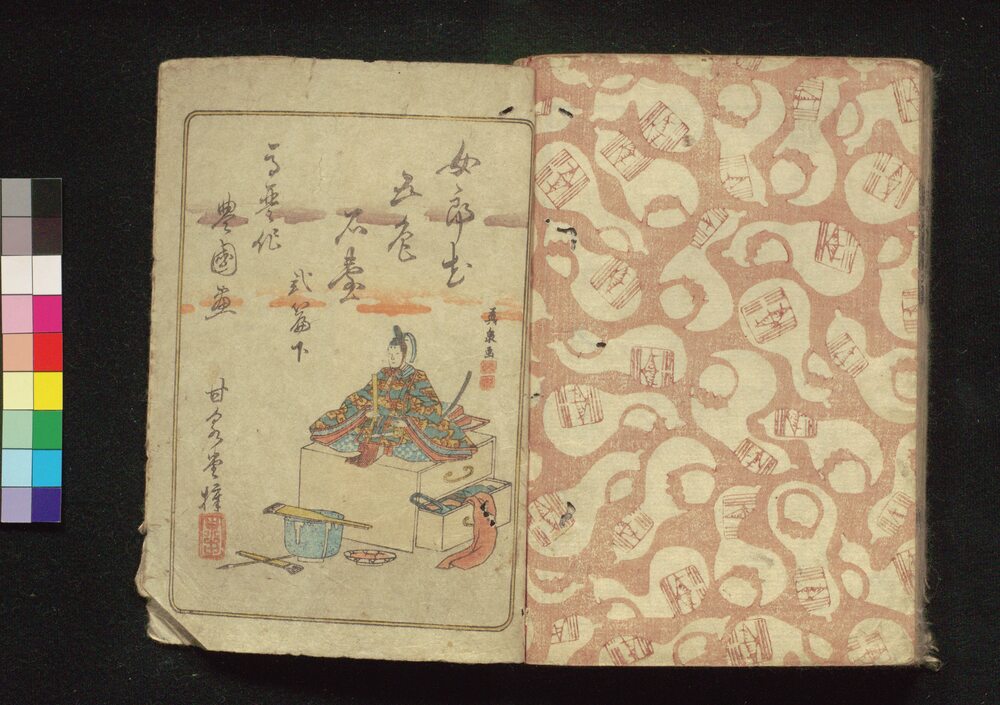 女郎花
五色
石臺
弐篇下
馬琴作
豊國畫
甘泉堂梓
英泉画